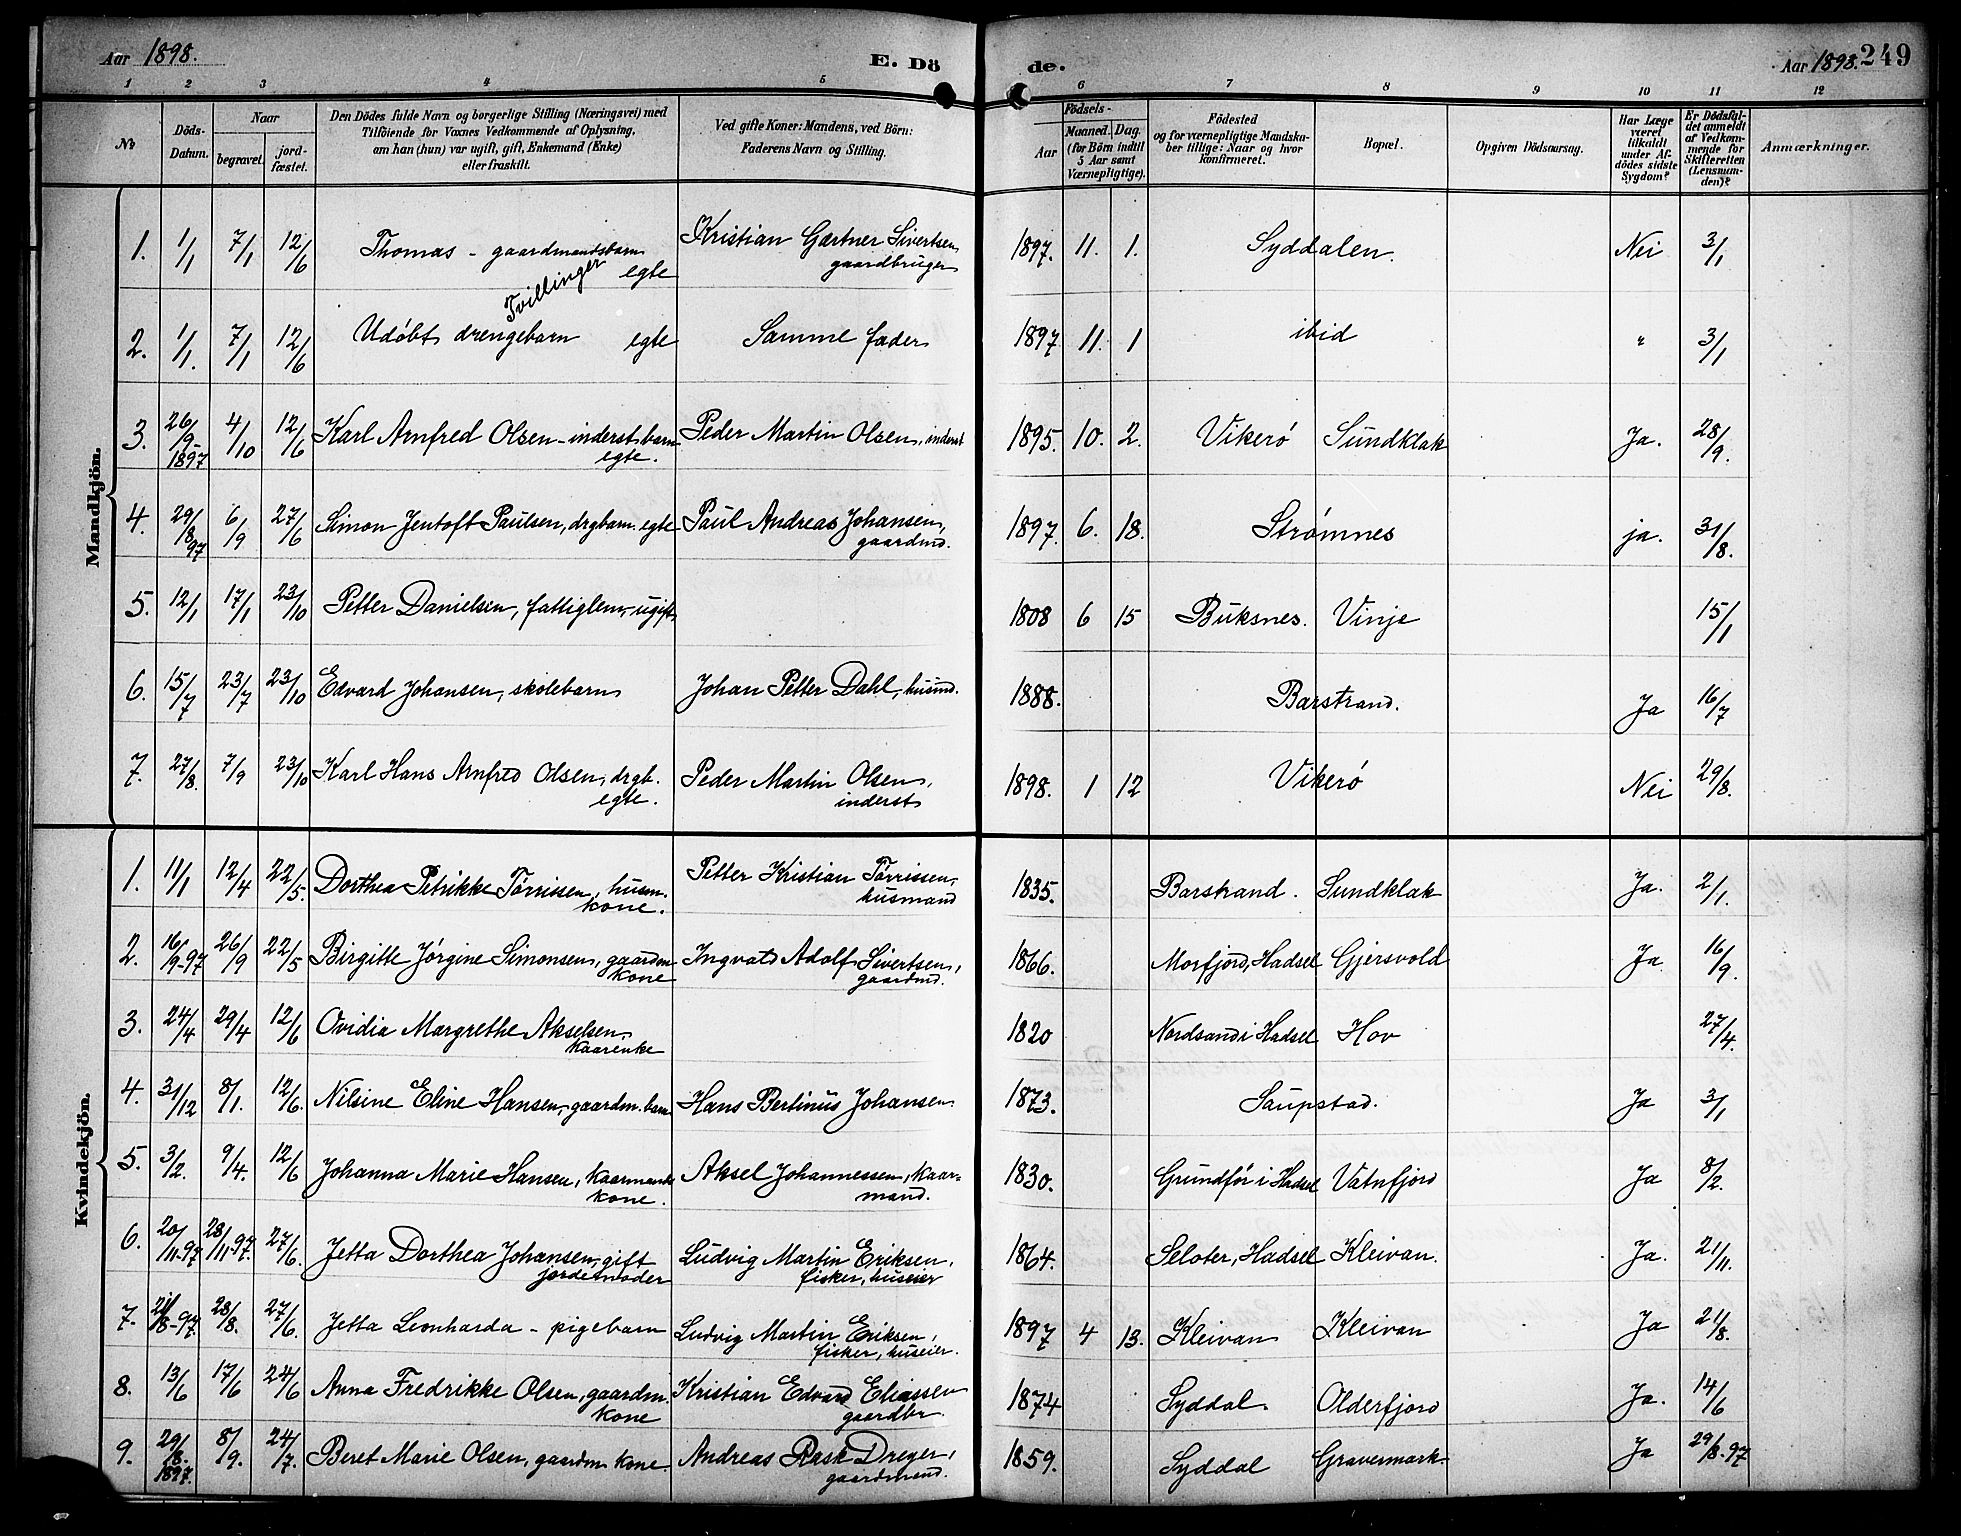 Aar 1898.
E. Dö
de.
Aar 1898.
249
1 2 3 4 5 6 7 8 9 10 11 12
No
Döds-
Datum.
Naar
begravet.
jord-
fæstet.
Den Dödes fulde Navn og borgerlige Stilling (Næringsvei) med
Tilföiende for Voxnes Vedkommende af Oplysning,
om han (hun) var ugift, gift, Enkemand (Enke)
eller fraskilt.
Ved gifte Koner: Mandens, ved Börn:
Faderens Navn og Stilling.
Födsels-
Aar
Maaned. Dag.
(for Börn indtil
5 Aar samt
Værnepligtige).
Födested
og for værnepligtige Mandska-
ber tillige: Naar og hvor
konfirmeret.
Bopæl.
Opgiven Dödsaarsag.
Har Læge
været
tilkaldt
under Af-
dödes sidste
Sygdom?
Er Dödsfal-
det anmeldt
af Vedkom-
mende for
Skifteretten
(Lensman-
den)?
Anmærkninger.
Mandkjön.
1. 1/1 7/1 12/6 Thomas - gaardmandsbarn egte Kristian Gartner Sivertsen gaardbruger 1897. 11. 1. Syddalen. Nei 3/1
Tvillinger
2. 1/1. 7/1 12/6 Udøbt drengebarn egte Samme fader 1897 11. 1 ibid " 3/1
3. 26/9-1897 4/10 12/6 Karl Arnfred Olsen - inderst barn egte. Peder Martin Olsen, inderst 1895. 10. 2. Vikerø Sundklak Ja. 28/9.
4. 29/8 97 6/9 27/6 Simon Jentoft Paulsen, drgbarn. egte Paul Andreas Johansen, gaardmd. 1897. 6. 18. Strømnes ja. 31/8.
5. 12/1 17/1 23/10 Petter Danielsen, fattiglem, ugift 1808 6 15 Buksnes. Vinje 15/1
6. 15/7 23/7 23/10 Edvard Johansen, skolebarn Johan Petter Dahl, husmd. 1888. Barstrand. Ja 16/7
7. 27/8. 7/9 23/10 Karl Hans Arnfred Olsen, drgb. egte. Peder Martin Olsen, inderst 1898. 1 12 Vikerø Nei 29/8.
Kvindekjön.
1. 11/1 12/4 22/5. Dorthea Petrikke Tørrissen, husm. kone. Petter Kristian Tørrissen, husmand 1835. Barstrand. Sundklak Ja. 2/1.
2. 16/9-97 26/9 22/5 Birgitte Jørgine Simonsen, gaardm kone Ingvald Adolf Sivertsen, gaardmd. 1866. Morfjord, Hadsel Gjersvold Ja 16/9.
3. 24/4 29/4 12/6 Ovidia Margrethe Akselsen, Kaarenke 1820 Nordsand i Hadsel Hov 27/4.
4. 31/12 8/1. 12/6. Nilsine Eline Hansen, gaardm. barn Hans Bertinus Johansen 1873. Saupstad. Ja 3/1
5. 3/2. 9/4. 12/6 Johanna Marie Hansen, kaarmands kone. Aksel Johannessen, kaar- mand. 1830. Grundfør i Hadsel Vatnfjord Ja 8/2.
6. 20/11-97 28/11-97. 27/6. Jetta Dorthea Johansen, gift jordemoder Ludvig Martin Eriksen, fisker, huseier 1864. Seloter, Hadsel Kleivan. Ja. 21/11.
7. 21/8-97 28/8. 27/6. Jetta Leonharda - pigebarn Ludvig Martin Eriksen, fisker, huseier. 1897 4 13. Kleivan Kleivan Ja 21/8.
8. 13/6 17/6 24/6 Anna Fredrikke Olsen, gaardm. kone Kristian Edvard Eliassen gaardbr. 1874 Syddal. Olderfjord Ja. 14/6
9. 29/8. 1897. 8/9. 24/7. Beret Marie Olsen, gaardm kone. Andreas Rask Dreyer, gaardmand. 1859. Syddal Gravermark Ja 29/8-97